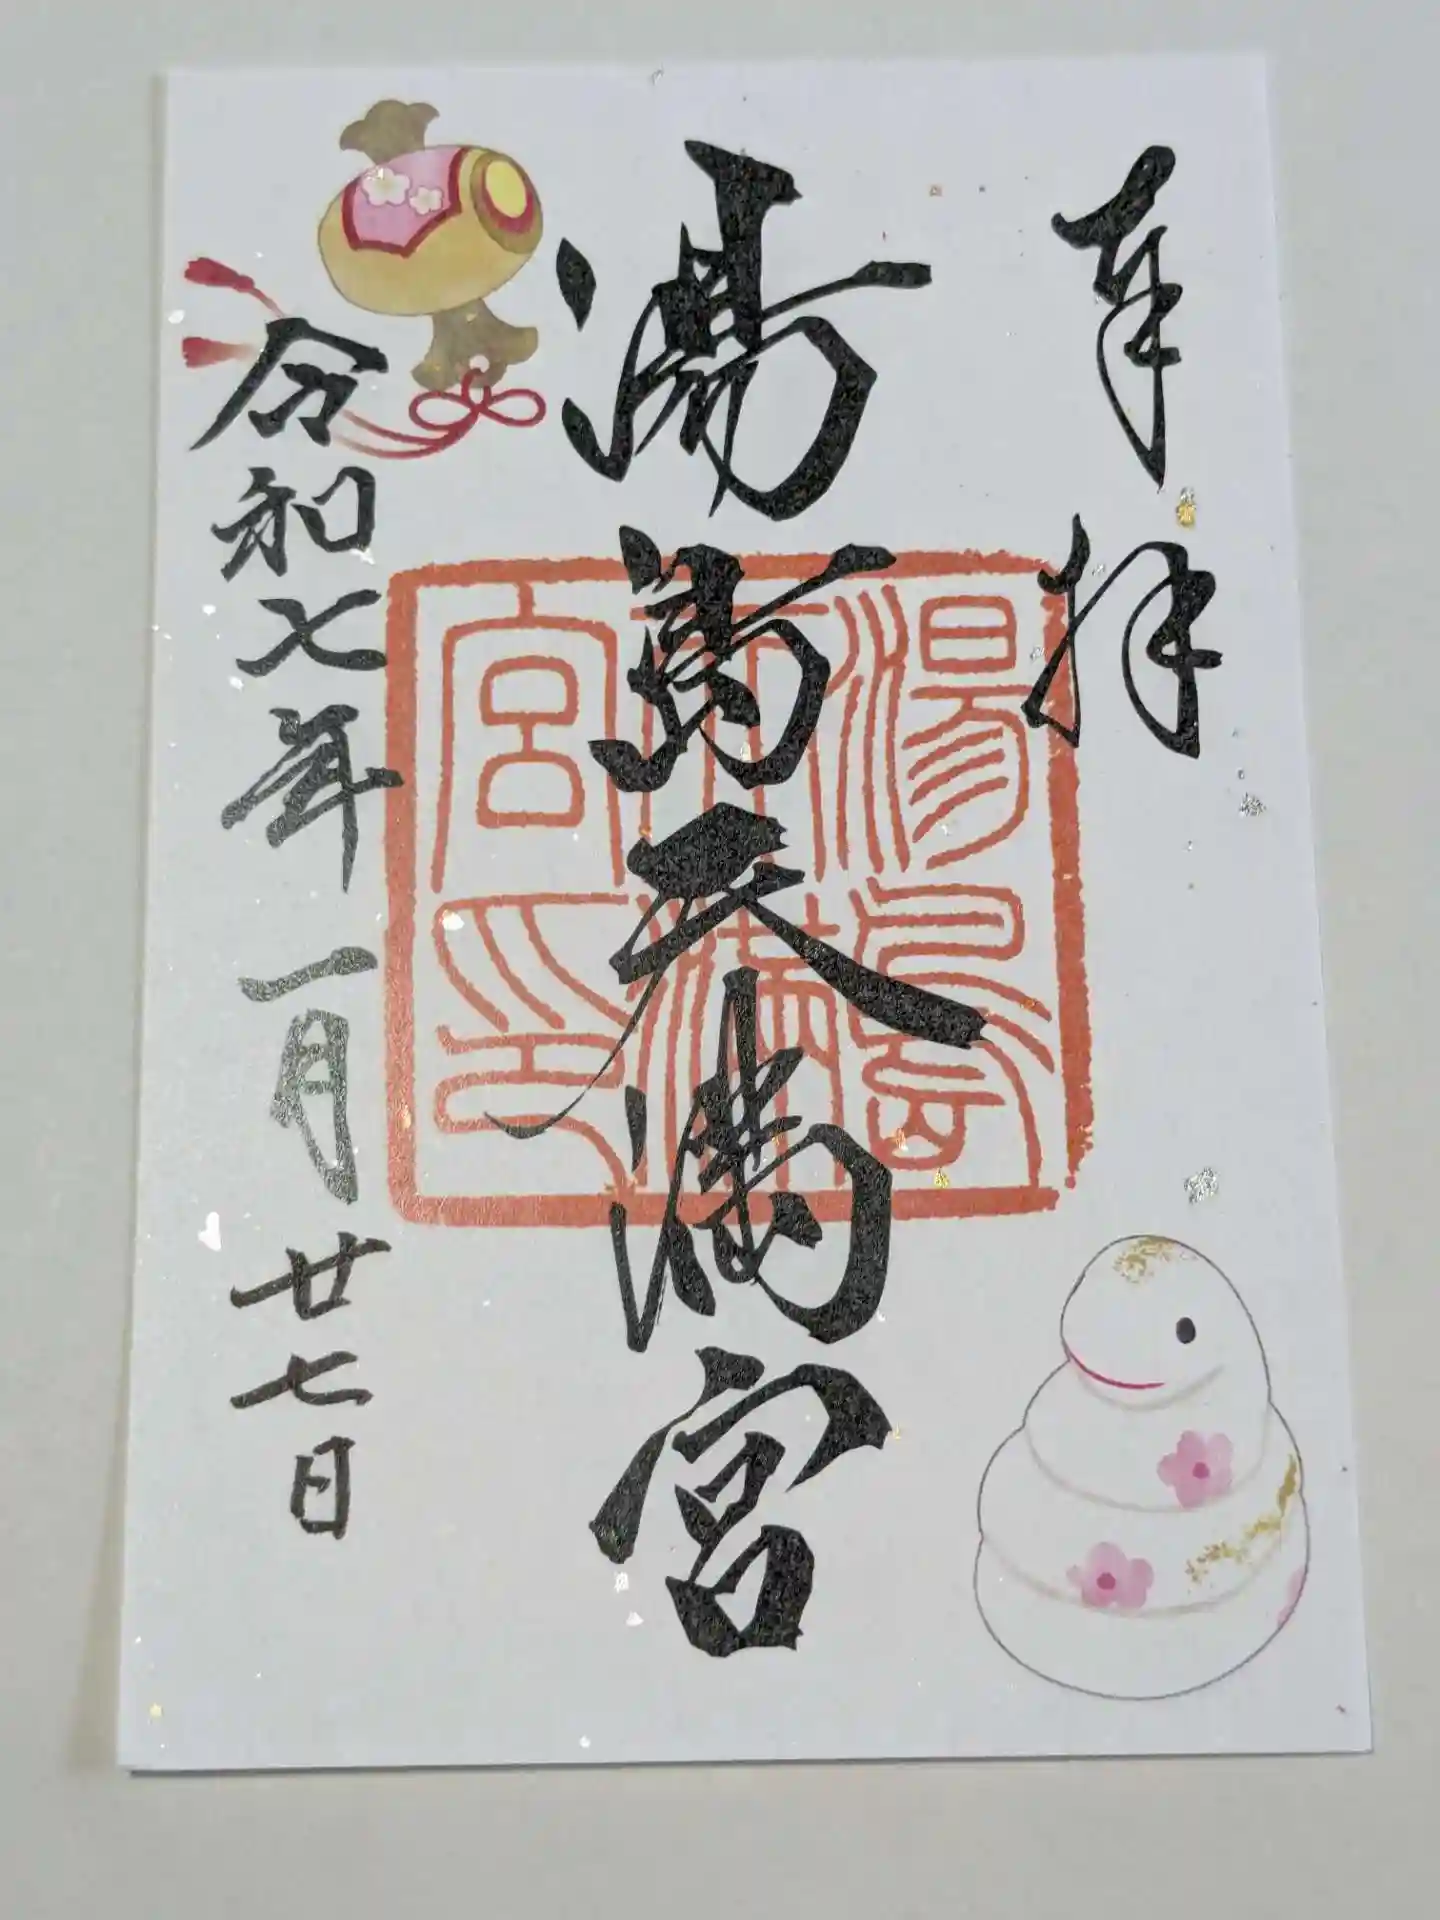 奉拝
湯島天満宮
湯島天満宮印
令和七年一月廿七日